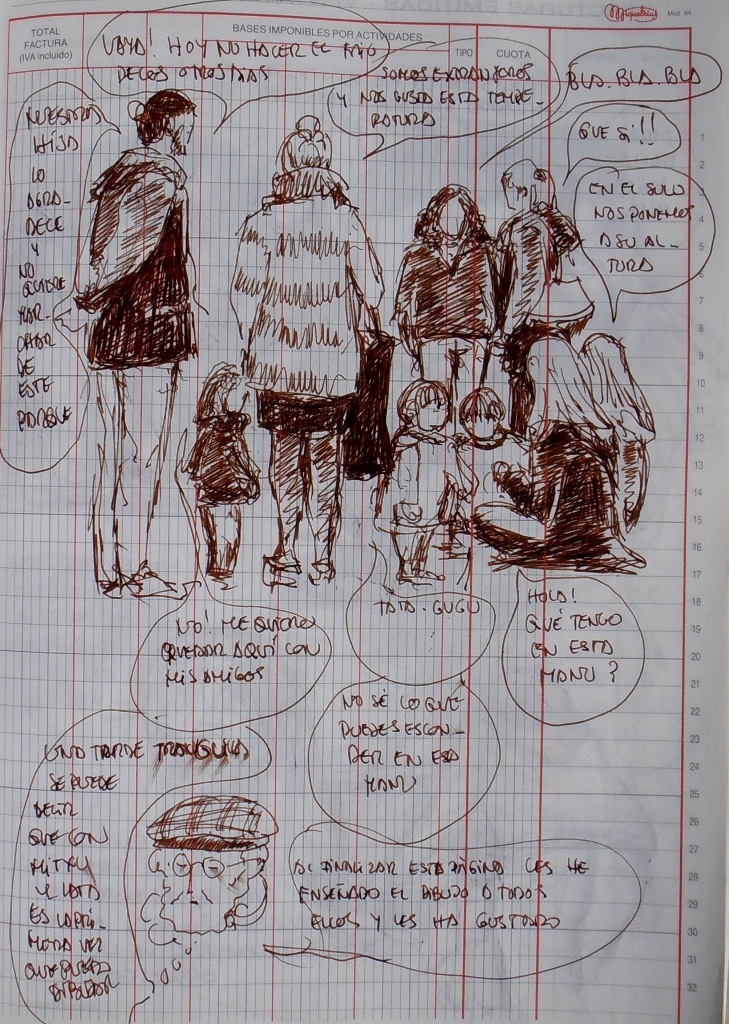 TOTAL
FACTURA
(IVA incluido)
BASES IMPONIBLES POR ACTIVIDADES
TIPO
CUOTA
Miquelrius
Mod. 64
VAYA! HOY NO HACER EL FRIO
DE LOS OTROS DIAS
SOMOS EXTRANJEROS
Y NOS GUSTA ESTA TEMPE-
RATURA
BLA. BLA. BLA
QUE SI!!
EN EL SUELO
NOS PONEMOS
A SU AL-
TURA
NUESTRA
HIJA
LO
AGRA-
DECE
Y
NO
QUIERE
MAR-
CHAR
DE
ESTE
PARQUE
1
2
3
4
5
6
7
8
9
10
11
12
13
14
15
16
17
18
19
20
21
22
23
24
25
26
27
28
29
30
31
32
NO! ME QUIERO
QUEDAR AQUÍ CON
MIS AMIGOS
TATA. GUGU
HOLA!
QUÉ TENGO
EN ESTA
MANO?
NO SÉ LO QUE
PUEDES ESCON-
DER EN ESA
MANO
UNA TARDE TRANQUILA
SE PUEDE
DECIR
QUE CON
ES LA PRI-
MERA VEZ
QUE PUEDO
DIBUJAR
AL FINALIZAR ESTA PÁGINA LES HE
ENSEÑADO EL DIBUJO A TODOS
ELLOS Y LES HA GUSTADO